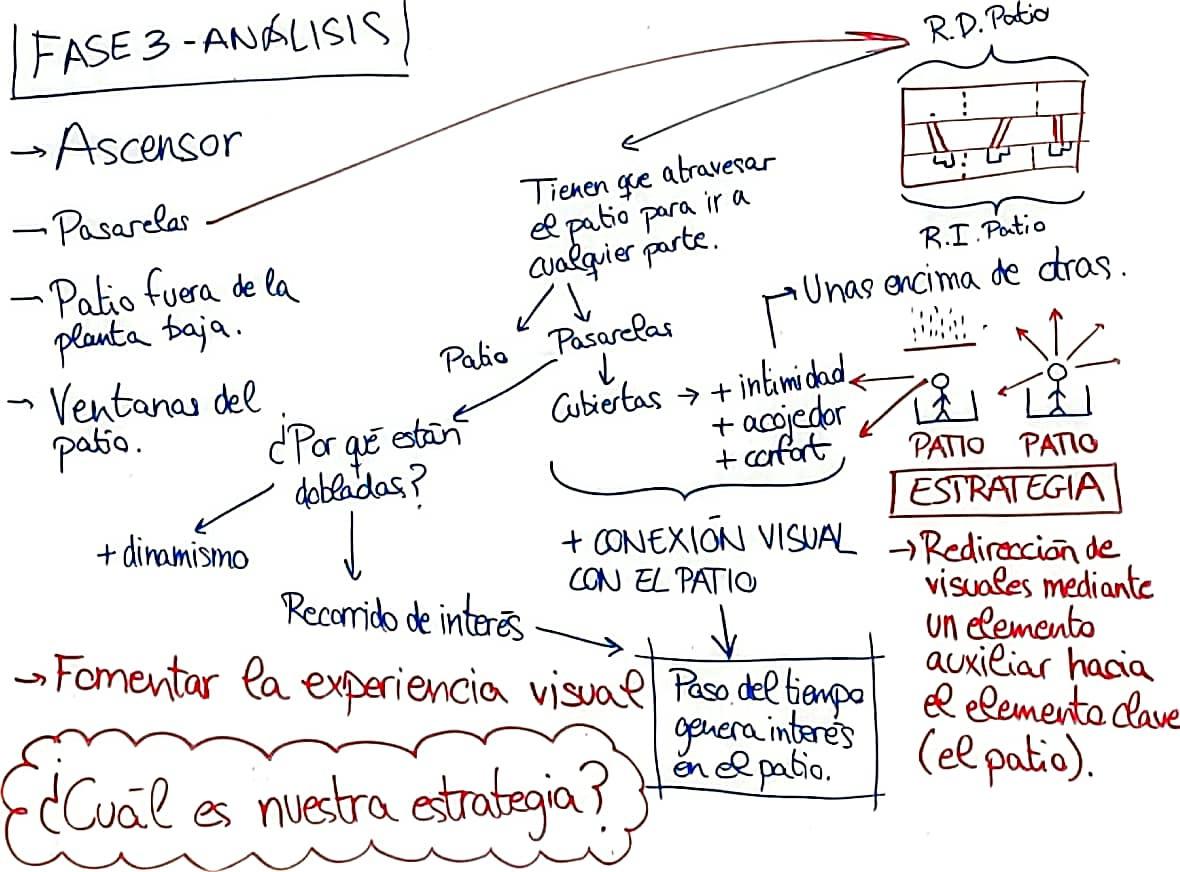 FASE 3 - ANÁLISIS
→ Ascensor
— Pasarelas
— Patio fuera de la
planta baja.
→ Ventanas del
patio.
R.D. Patio
R.I. Patio
Tienen que atravesar
el patio para ir a
cualquier parte.
Patio
Pasarelas
Cubiertas → + intimidad
+ acojedor
+ confort
Unas encima de otras.
¿Por qué están
dobladas?
+ dinamismo
Recorrido de interés
+ CONEXIÓN VISUAL
CON EL PATIO
Paso del tiempo
genera interés
en el patio.
PATIO
PATIO
ESTRATEGIA
→ Redirección de
visuales mediante
un elemento
auxiliar hacia
el elemento clave
(el patio).
→ Fomentar la experiencia visual
¿Cuál es nuestra estrategia?